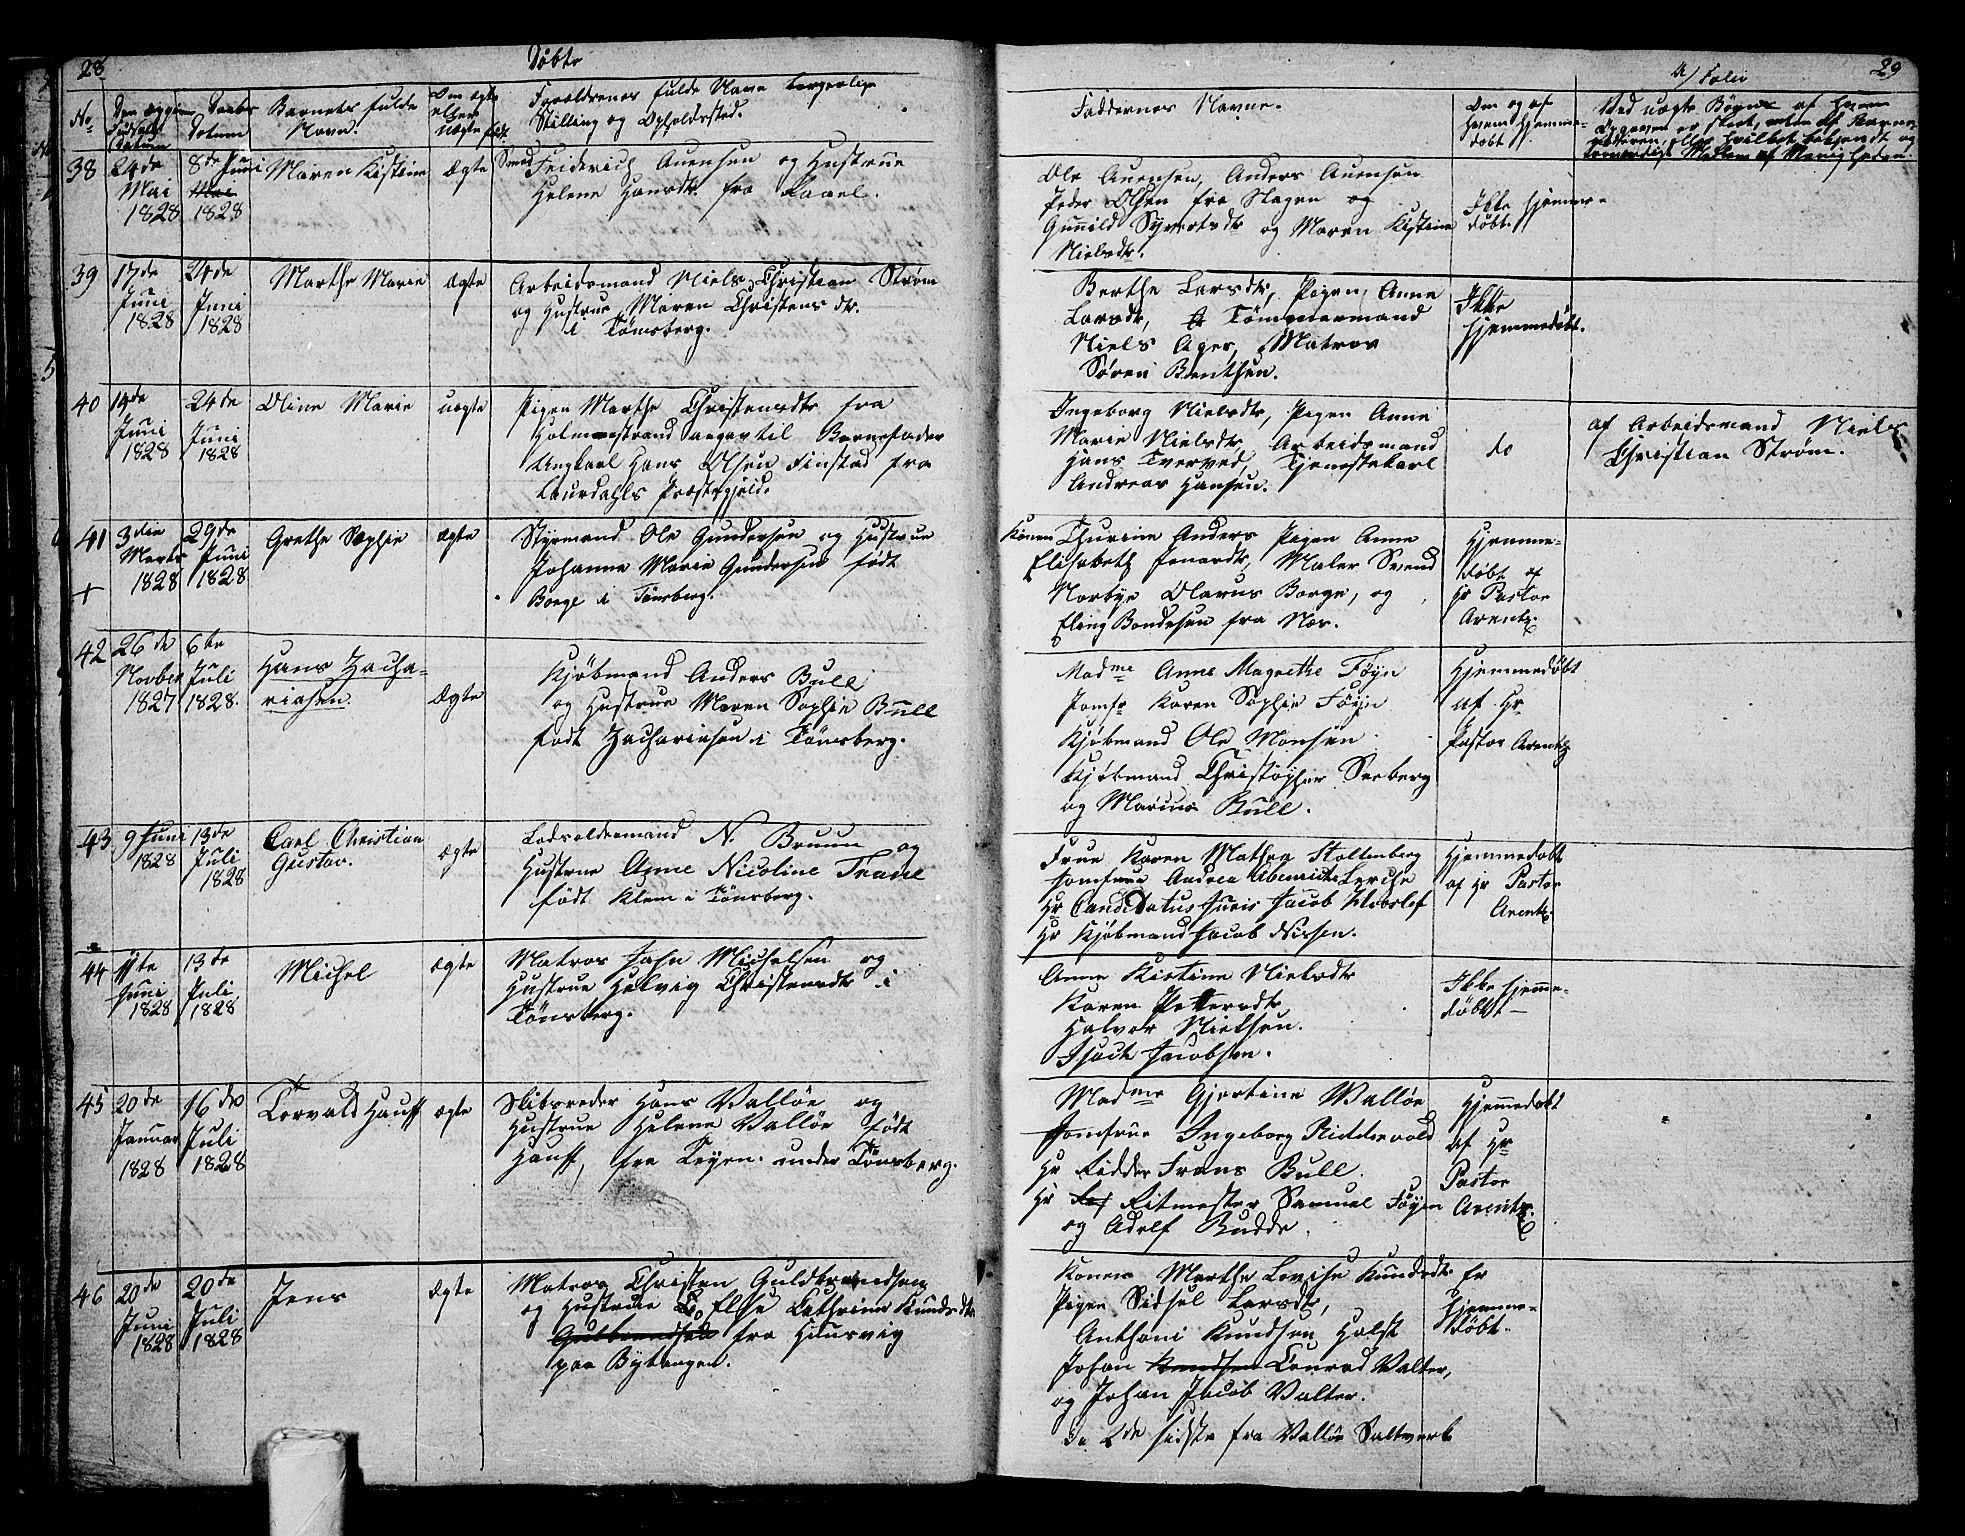 28
Døbte
No
Den opgivne Fødsels Datum
Daabs Datum
Barnets fulde Navn.
Om ægte eller uægte født
Forældrenes fulde Navn borgerlige
Stilling og Opholdssted.
38
24de Mai 1828
8de Juni 1828
Maren Kistine
ægte
Smed Friderich Auensen og Hustrue
Helene Hansdtr fra
39
17de Juni 1828
24de Juni 1828
Marthe Marie
ægte
Arbeidsmand Niels Christian Strøm
og Hustrue Maren Christensdtr.
i Tønsberg.
40
14de Juni 1828
24de Juni 1828
Oline Marie
uægte
Pigen Marthe Christensdtr fra
Holmestrand angav til Barnefader
Ungkarl Hans Olsen Finstad fra
Laurdahls Præstegjeld.
41
+
3die Marts 1828
29de Juni 1828
Grethe Sophie
ægte
Styrmand Ole Gundersen og Hustrue
Johanne Marie Gundersen født
Borge i Tønsberg.
42
26de Novber 1827
6te Juli 1828.
Hans Zacha-
riasen.
ægte
Kjøbmand Anders Bull
og Hustrue Maren Sophie Bull
født Zachariasen i Tønsberg.
43
9 Juni 1828
13de Juli 1828
Carl Christian
Gustav.
ægte
Lodsoldermand N. Bruun og
Hustrue Anne Nicoline
født Klem i Tønsberg.
44
11te Juni 1828
13de Juli 1828
Michel
ægte
Matros John Michelsen og
Hustrue Helvig Christensdtr i
Tønsberg.
45
20de Januar 1828
16de Juli 1828
Torvald Hauff
ægte
Skibsreder Hans Valløe og
Hustrue Helene Valløe født
Hauff, fra under Tønsberg.
46
20de Juni 1828
20de Juli 1828
Jens
ægte
Matros Christen Guldbrandsen
og Hustrue Else Cathrine Knudsdtr
Gulbrandsen fra Husvig
paa Bytangen.
a/ Folii
29
Faddernes Navne.
Om og af hvem hjemme-
døbt
Ved uægte Børn af hvem
Ole Auensen, Anders Auensen
Peder Olsen fra Slagen og
Gunnild Syvertsdtr og Maren Kistine
Nielsdtr.
Ikke hjemme-
døbt
Berthe Larsdtr, Pigen Anne
Larsdtr, Tømmermand
Niels Ager, Matros
Søren Bentsen.
Ikke
hjemmedøbt.
Ingeborg Nielsdtr, Pigen Anne
Marie Nielsdtr, Arbeidsmand
Hans Tverved, Tjenestekarl
Andreas Hansen.
do
af Arbeidsmand Niels
Christian Strøm.
Konen Thurine Anders Pigen Anne
Elisabeth Jensdtr, Maler Svend
Norbye Olaus Borge, og
Eling Bondesen fra Næs.
Hjemme-
døbt af
Hr Pastor
Arentz.
Madme Anne Magrethe Føyn
Jomfr Karen Sophie Føyn
Kjøbmand Ole Monsen
Kjøbmand Christopher Seeberg
og Marius Bull.
Hjemmedøbt
af Hr
Pastor Arentz
Frue Karen Mathea Stoltenberg
Jomfrue Andrea Lerche
Hr Candidatus Juris Jacob
Hr Kjøbmand Jacob Nissen.
Hjemmedøbt
af Hr Pastor
Arentz.
Anne Kistine Nielsdtr
Karen Pettersdtr
Halvor Nielsen.
Isach Jacobsen.
Ikke hjemme-
døbt
Madme Gjertine Walløe
Jomfrue Ingeborg Riddervold
Hr Ridder Frans Bull.
Hr Ritmester Samuel Føyen
og Adolf Budde.
Hjemmedøbt
af Hr
Pastor
Arentz.
Konen Marthe Lovise Knudsdtr
Pigen Sidsel Larsdtr,
Anthoni Knudsen Holst
Johan Knudsen Conrad Valter,
og Johan Jacob Valter.
de 2de sidste fra Valløe Saltverk
Er
hjemme-
døbt.